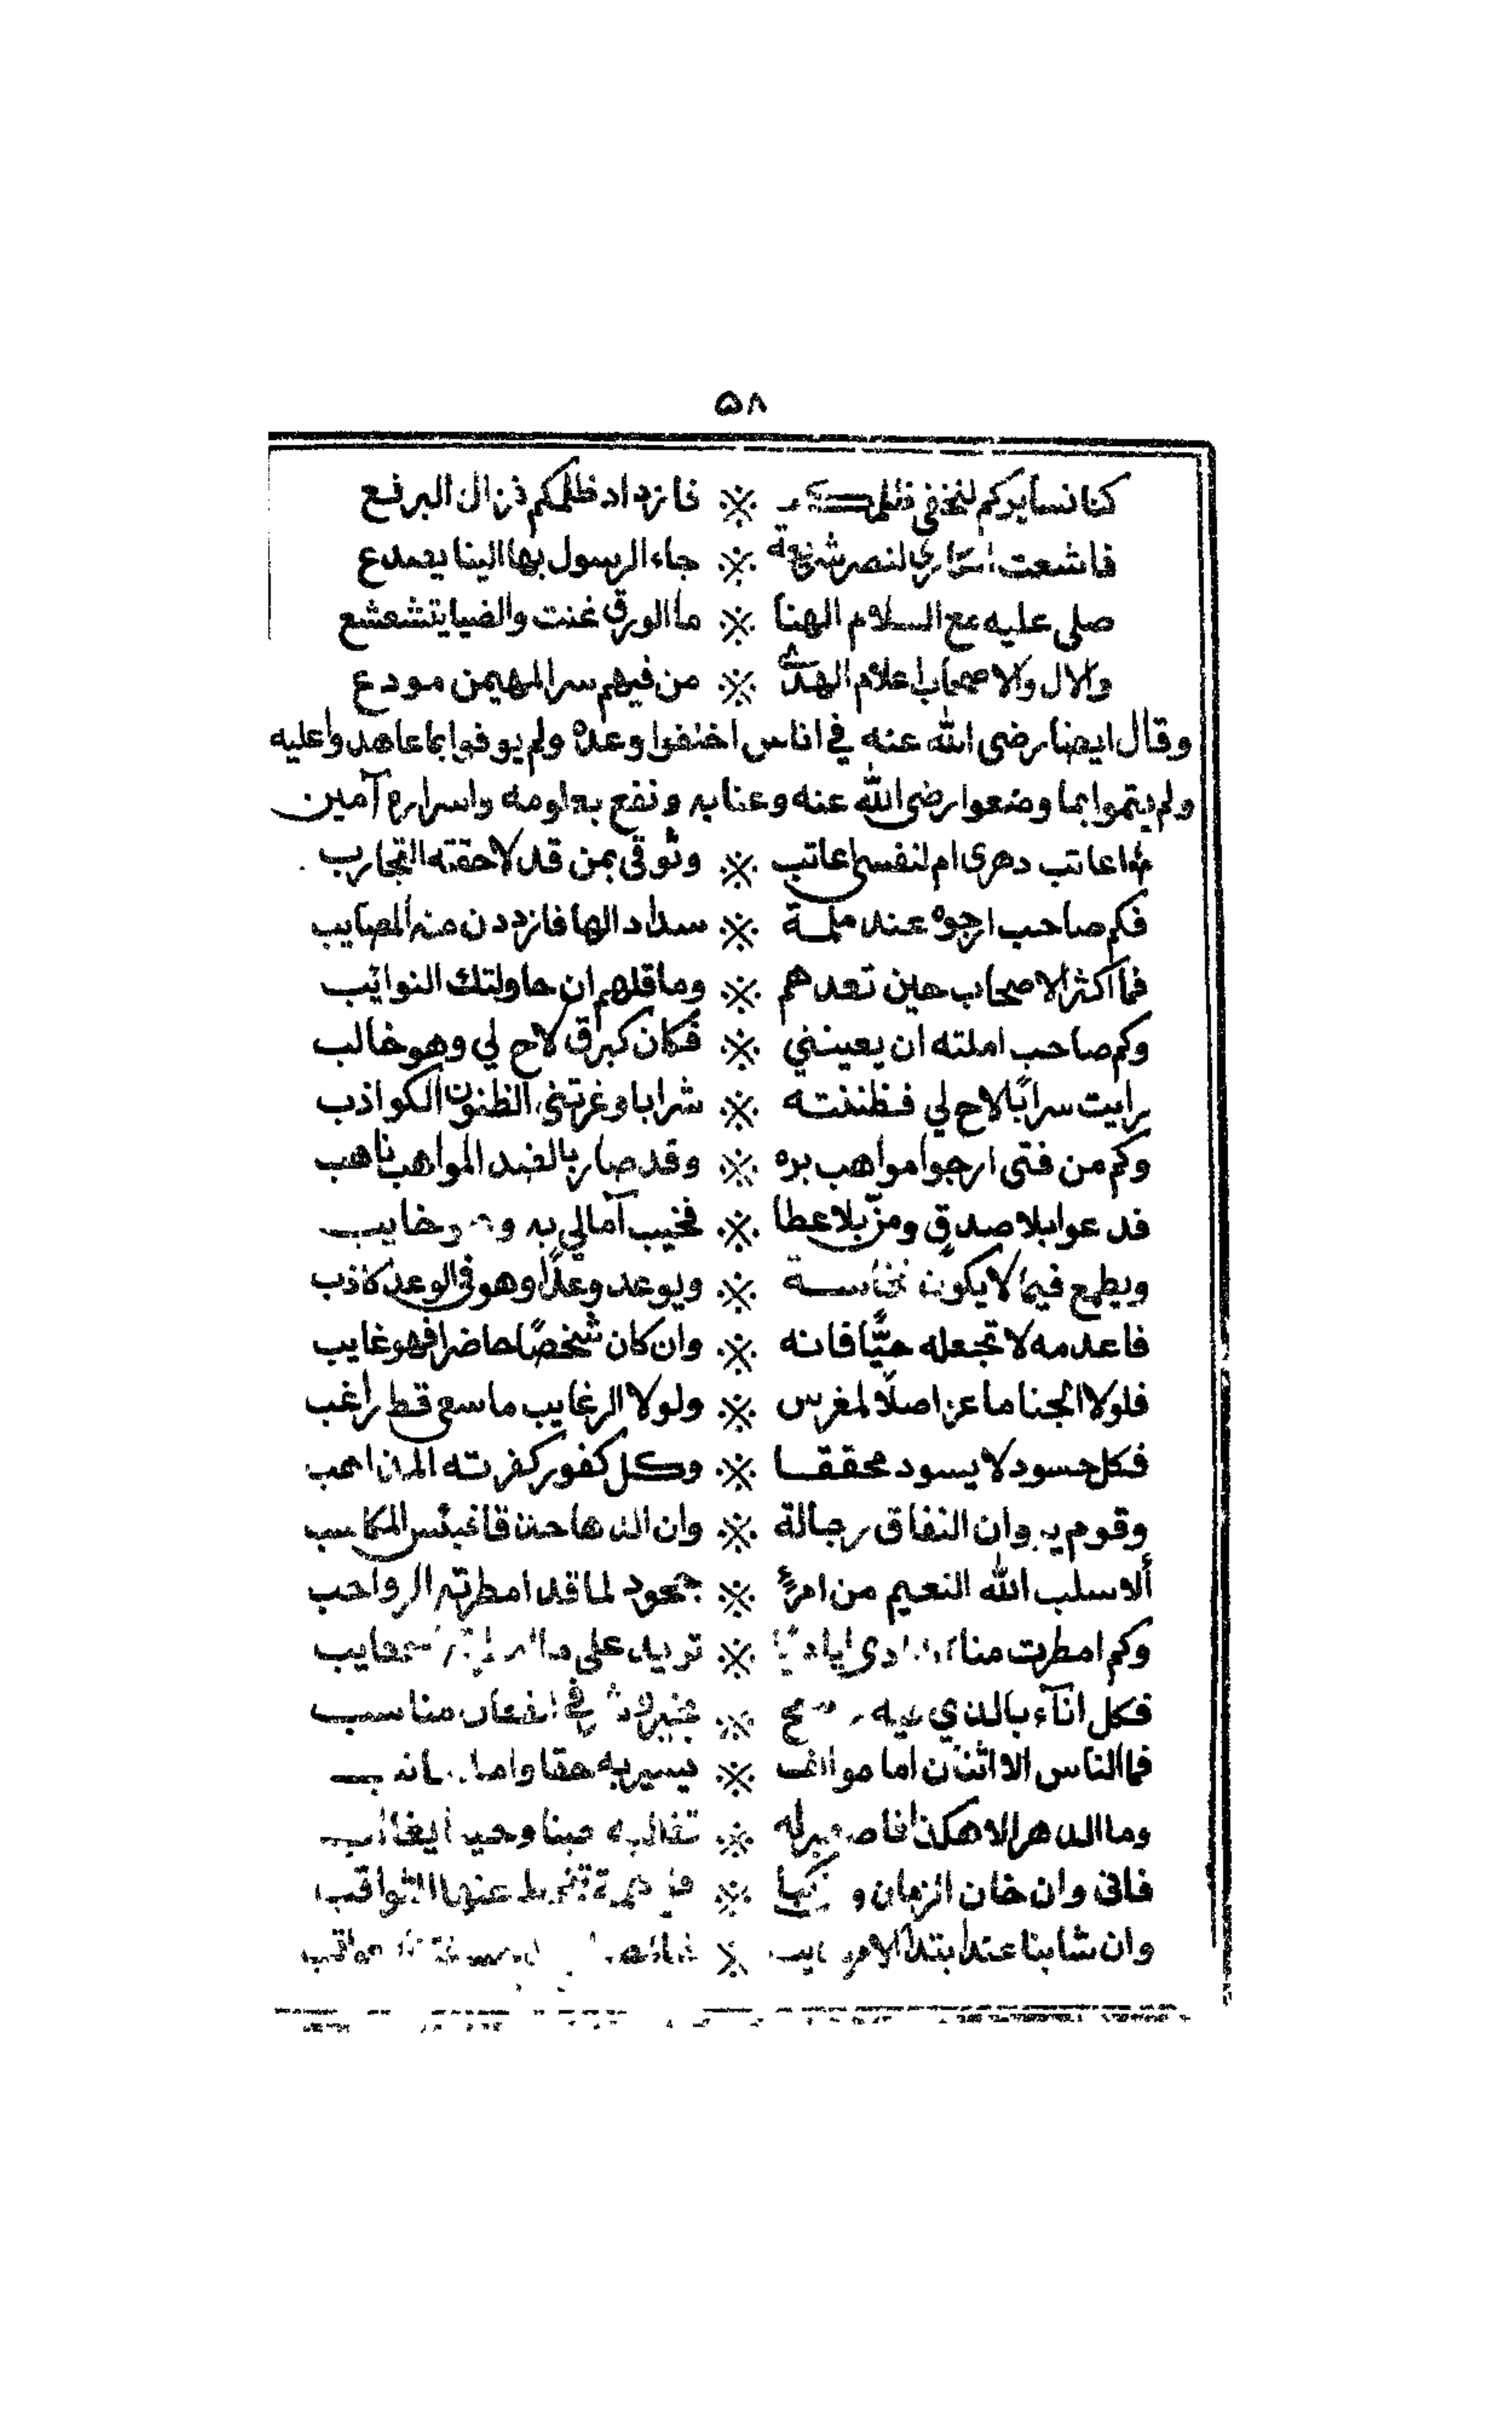 ٥٨
كنا نسايركم لنخفي ※ فازداد ظلمكم فزال البرقع
فاشعت لنصر شريعة ※ جاء الرسول بها الينا يصدع
صلى عليه مع السلام الهنا ※ ما الورق غنت والضيا يتشعشع
والال والاصحاب اعلام الهدى ※ من فيهم سر المهيمن مودع
وقال ايضا رضى الله عنه في اناس اخلفوا وعده ولم يوفوا بما عاهدوا عليه
ولم يتموا بما وضعوا رضى الله عنه وعنا به ونفع بعلومه واسراره آمين
اعاتب دهرى ام لنفسى اعاتب ※ وثوقى بمن قد لاحقته التجارب
فكم صاحب ارجوه عند ملمة ※ سدادا لها فازددن منه المصايب
فما اكثر الاصحاب حين تعدهم ※ وما قلهم ان حاولتك النوائب
وكم صاحب املته ان يعينني ※ فكان كبرق لاح لي وهو خالب
رايت سرابًا لاح لي فظننته ※ شرابا وغرتني الظنون الكواذب
وكم من فتى ارجوا مواهب بره ※ وقد صار بالضد المواهب ناهب
فدعوا بلا صدق ومنّ بلا عطا ※ فخيب آمالي به خايب
ويطمع فيما لا يكون ※ ويوعد وعدًا وهو في الوعد كاذب
فاعدمه لا تجعله حيًّا فانه ※ وان كان شخصًا حاضرا فهو غايب
فلولا الجنا ما عز اصلًا لمغرس ※ ولولا الرغايب ما سعى قط راغب
فكل حسود لا يسود محققا ※ وكل كفور كفرته
وقوم يروان النفاق رجالة ※ وان الدها حذقا فبئس المكاسب
ألا سلب الله النعيم من امرئ ※ جحود لما قد امطرته الرواحب
وكم امطرت منا ※ تريد على
فكل اناء بالذي فيه ※ مناسب
فما الناس الا اثنان اما موالف ※ يسير به حقا واما
وما الدهر الا هكذا فاصبر له ※ تغالبه حينا وحينا يغالب
فانى وان خان الزمان ※ عنها الثواقب
وان شابنا عند ابتدا الامر ※